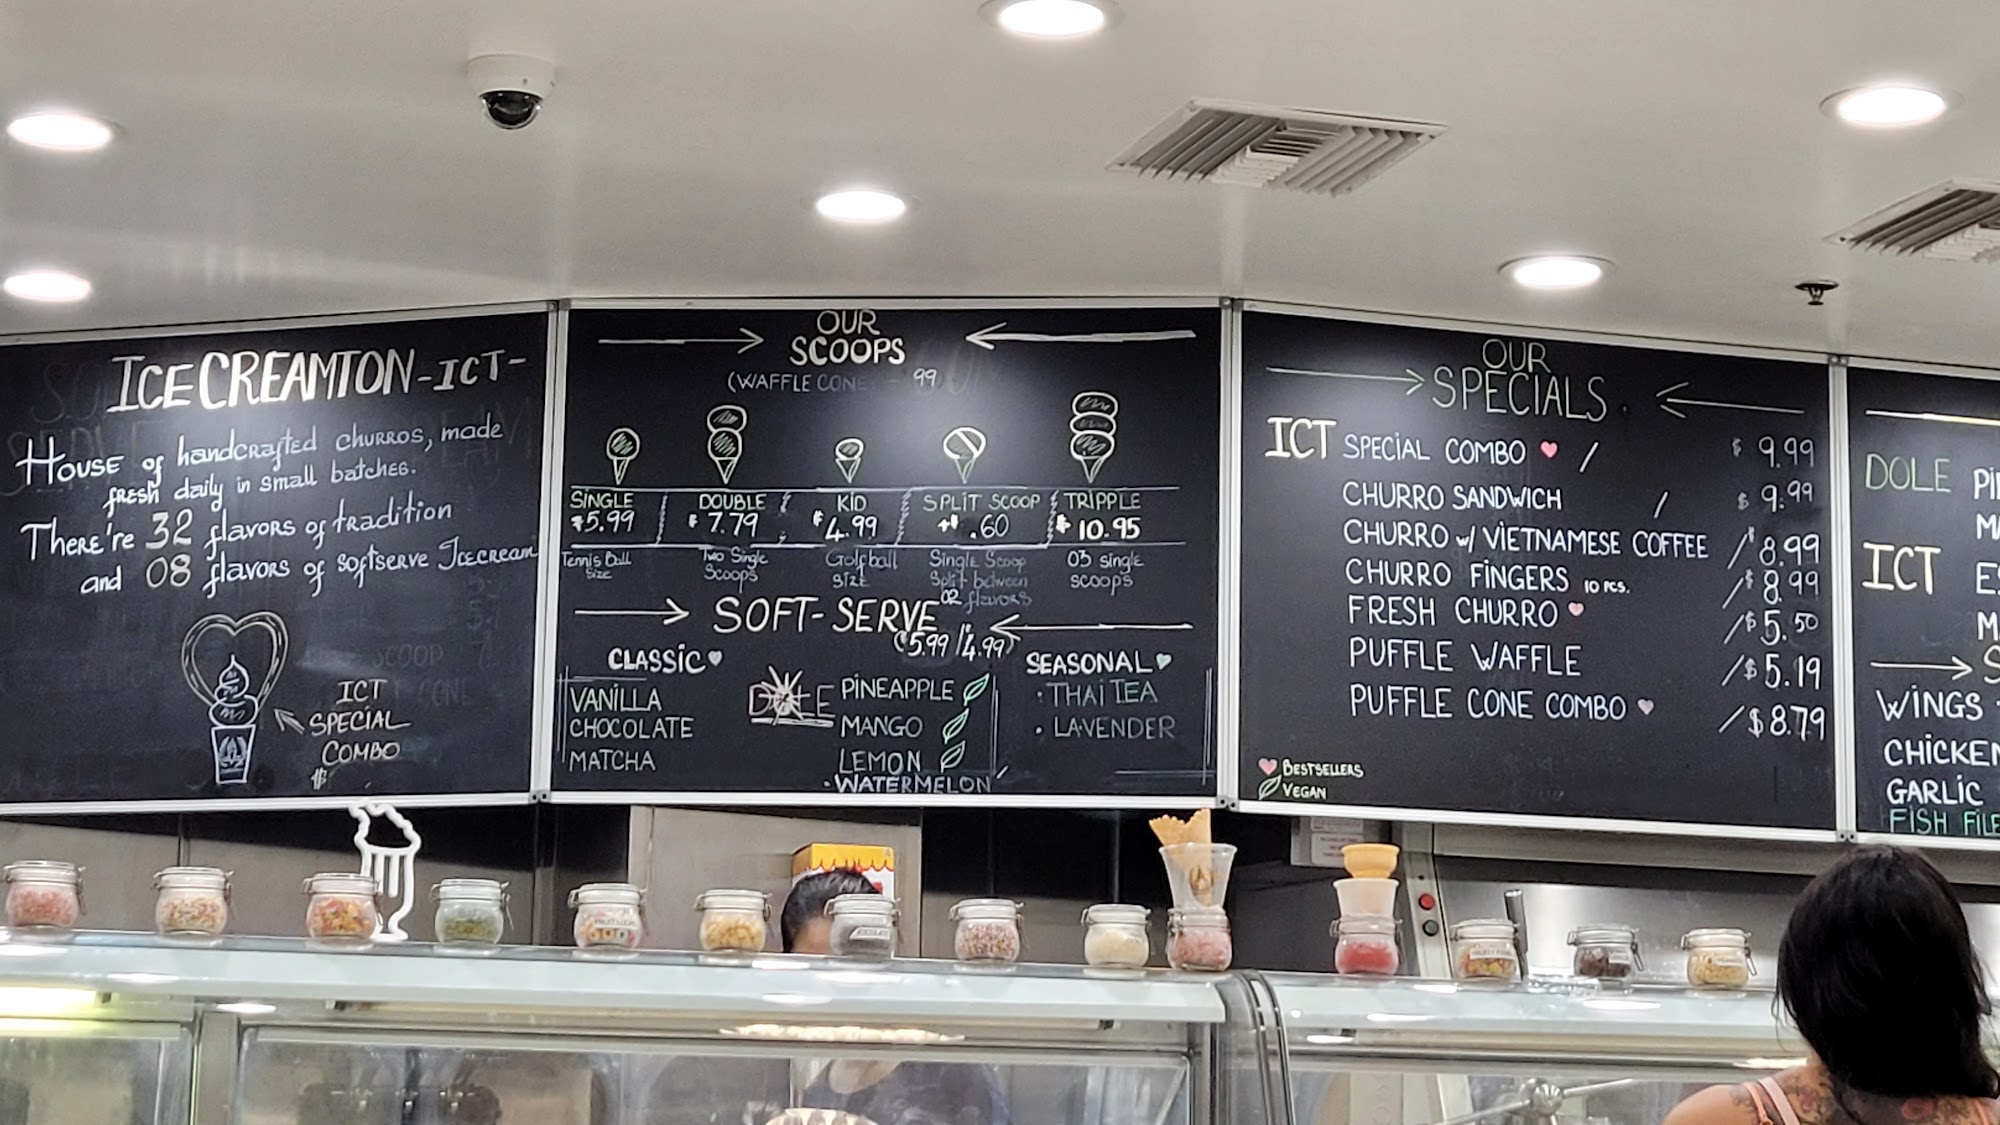 ICECREAMTON -ICT-
House of handcrafted churros, made
fresh daily in small batches.
There're 32 flavors of tradition
and 08 flavors of softserve Icecream
ICT
SPECIAL
COMBO
$
OUR
SCOOPS
(WAFFLE CONE - 99
SINGLE DOUBLE KID SPLIT SCOOP TRIPPLE
$5.99 $7.79 $4.99 +$.60 $10.95
Tennis Ball Size
Two Single Scoops
Golfball size
Single Scoop Split between 02 flavors
03 single scoops
SOFT-SERVE
($5.99/4.99)
CLASSIC
VANILLA
CHOCOLATE
MATCHA
DOLE
PINEAPPLE
MANGO
LEMON
-WATERMELON
SEASONAL
• THAI TEA
• LAVENDER
OUR
SPECIALS
ICT SPECIAL COMBO / $ 9.99
CHURRO SANDWICH / $ 9.99
CHURRO w/ VIETNAMESE COFFEE /$8.99
CHURRO FINGERS 10 PCS. /$8.99
FRESH CHURRO /$5.50
PUFFLE WAFFLE /$5.19
PUFFLE CONE COMBO /$8.79
BESTSELLERS
VEGAN
DOLE
ICT
WINGS
CHICKEN
GARLIC
FISH FILE